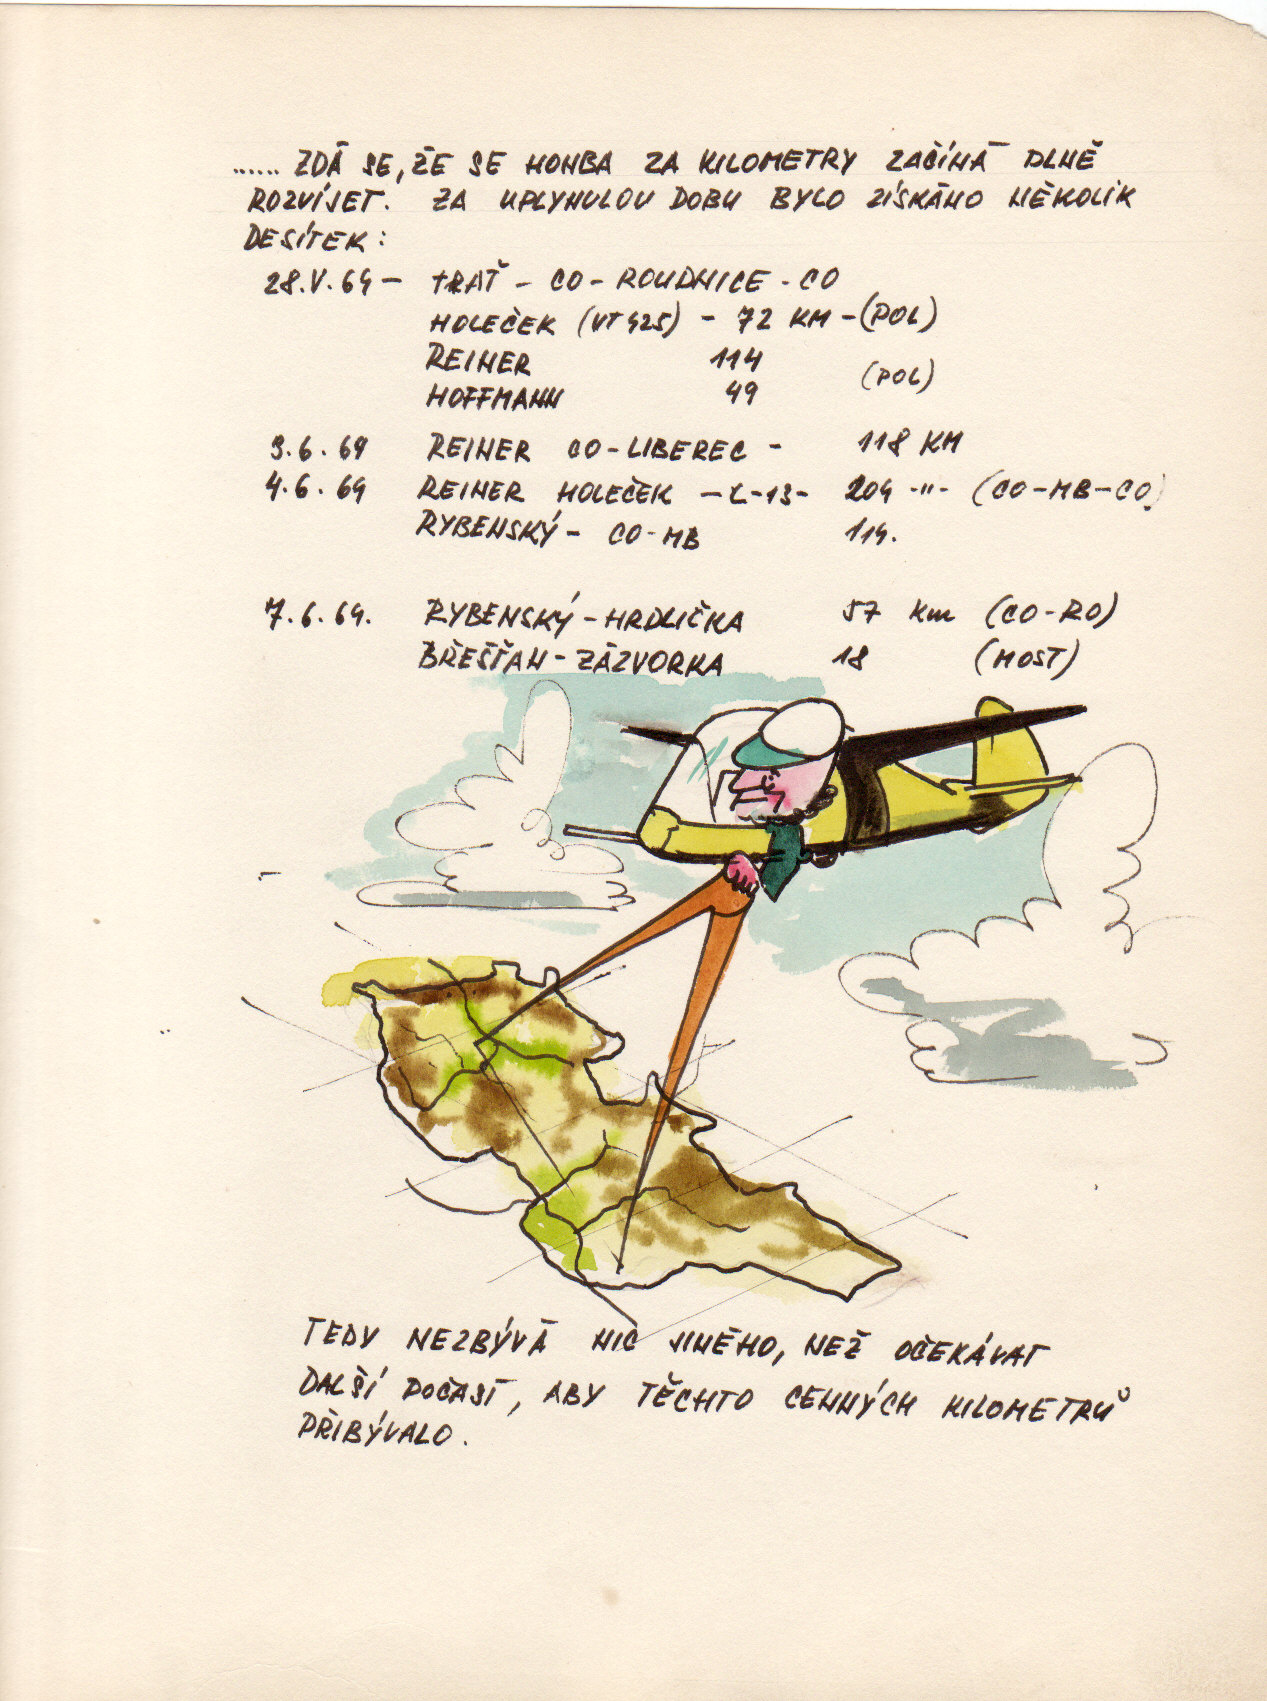 ...... ZDÁ SE, ŽE SE HONBA ZA KILOMETRY ZAČÍNÁ DLNĚ
ROZVÍJET. ZA UPLYNULOU DOBU BYLO ZÍSKÁNO NĚKOLIK
DESÍTEK:
28.V.64 - TRAŤ - CO - ROUDNICE - CO
HOLEČEK (VT 425) - 72 KM - (POL)
REINER 114
HOFFMANN 49 (POL)
3.6.64 REINER CO - LIBEREC - 118 KM
4.6.64 REINER HOLEČEK - L-13- 204 -"- (CO-MB-CO)
RYBENSKÝ - CO - MB 114.
7.6.64. RYBENSKÝ - HRDLIČKA 57 Km (CO-RO)
BŘEŠŤAN - ZÁZVORKA 18 (MOST)
TEDY NEZBÝVÁ NIC JINÉHO, NEŽ OČEKÁVAT
DALŠÍ POČASÍ, ABY TĚCHTO CENNÝCH KILOMETRŮ
PŘIBÝVALO.